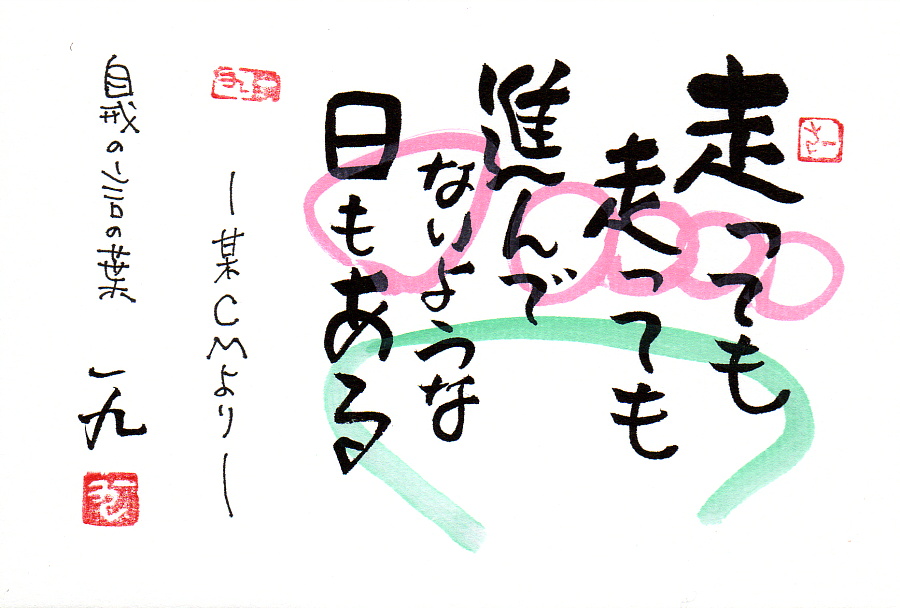 走っても
走っても
進んで
ないような
日もある
ー某CMよりー
自戒の言の葉
一九